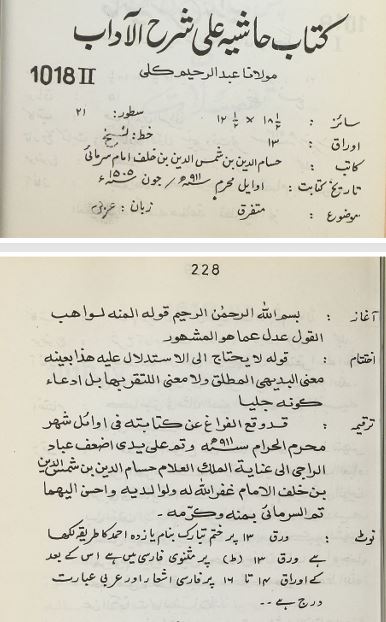 کتاب حاشیه علی شرح الآداب
مولانا عبدالرحیم کلی
1018 II
سائز : ۱۸ ۱/۴ × ۱۲ ۱/۴ سطور: ۲۱
اوراق : ۱۳ خط: نسخ
کاتب : حسام الدین بن شمس الدین بن خلف امام سرمانی
تاریخ کتابت : اوایل محرم سنہ ۹۱۱ھ / جون سنہ ۱۵۰۵ء
موضوع : متفرق زبان: عربی
228
آغاز : بسم الله الرحمٰن الرحیم قوله المنه لواهب
القول عدل عما هو المشهور
اختتام : قوله لا یحتاج الی الاستدلال علیه هذا بعینه
معنی البدیهی المطلق ولا معنی اللتقریبها بل ادعاء
کونه جلیا
ترقیمہ : قد وقع الفراغ عن کتابته فی اوائل شهر
محرم الحرام سنه ۹۱۱ھ و تم علی یدی اضعف عباد
الراجی الی عنایة الملک العلام حسام الدین بن شمس الدین
بن خلف الامام غفر الله له ولوالدیه واحسن الیهما
تم السرمانی بمنه وکرمه ۔
نوٹ : ورق ۱۳ پر ختم تبارک بنام یازدہ احمد کا طریقہ لکھا
ہے ورق ۱۳ (ط) پر مثنوی فارسی میں ہے اس کے بعد
کے اوراق ۱۴ تا ۱۶ پر فارسی اشعار اور عربی عبارت
درج ہے ۔۔